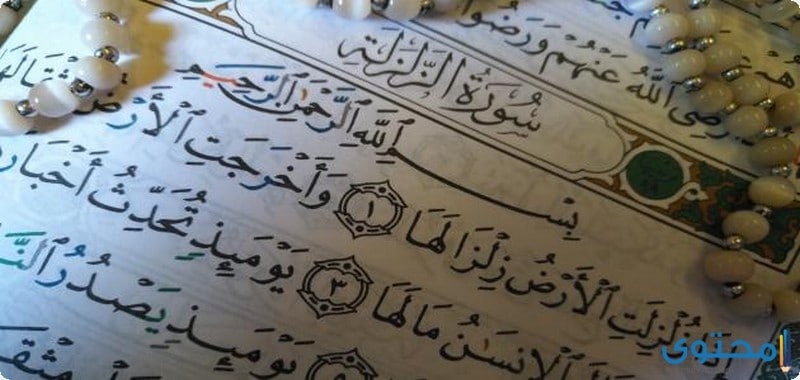 رَّضِىَ ٱللَّهُ عَنْهُمْ وَرَضُوا
سُورَةُ ٱلزَّلْزَلَةِ
بِسْمِ ٱللَّهِ ٱلرَّحْمَٰنِ ٱلرَّحِيمِ
زُلْزِلَتِ ٱلْأَرْضُ زِلْزَالَهَا ١ وَأَخْرَجَتِ ٱلْأَرْضُ
ٱلْإِنسَٰنُ مَا لَهَا ٣ يَوْمَئِذٍ تُحَدِّثُ أَخْبَارَ
يَوْمَئِذٍ يَصْدُرُ ٱلنَّ
محتوى